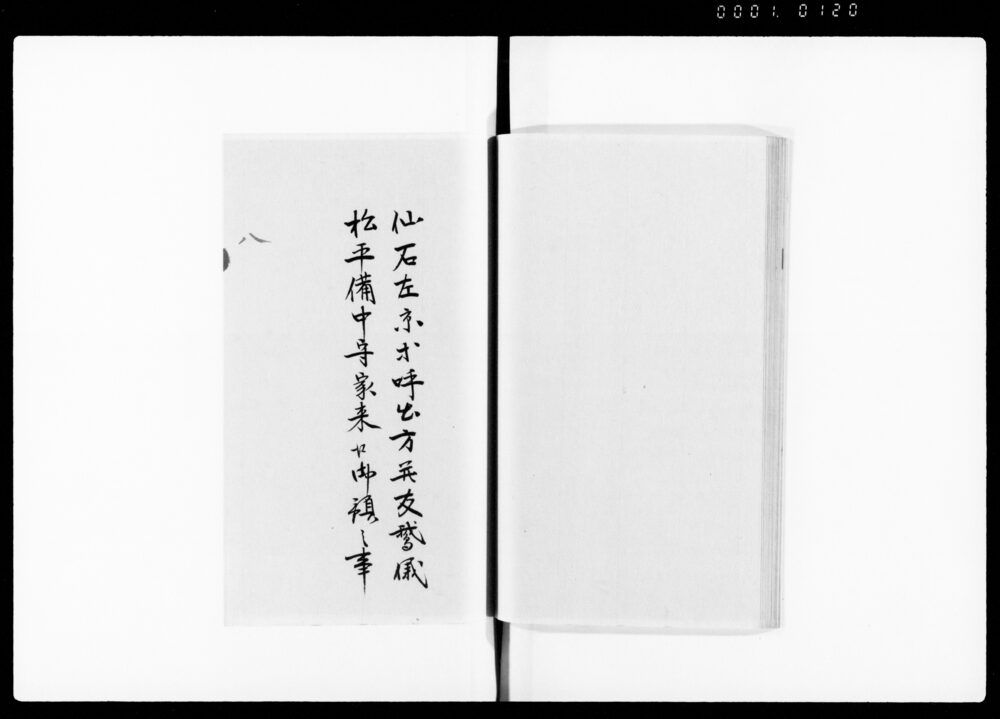 0001. 0120
仙石左京才呼出方并友鵞儀
松平備中守家来江御預之事
八